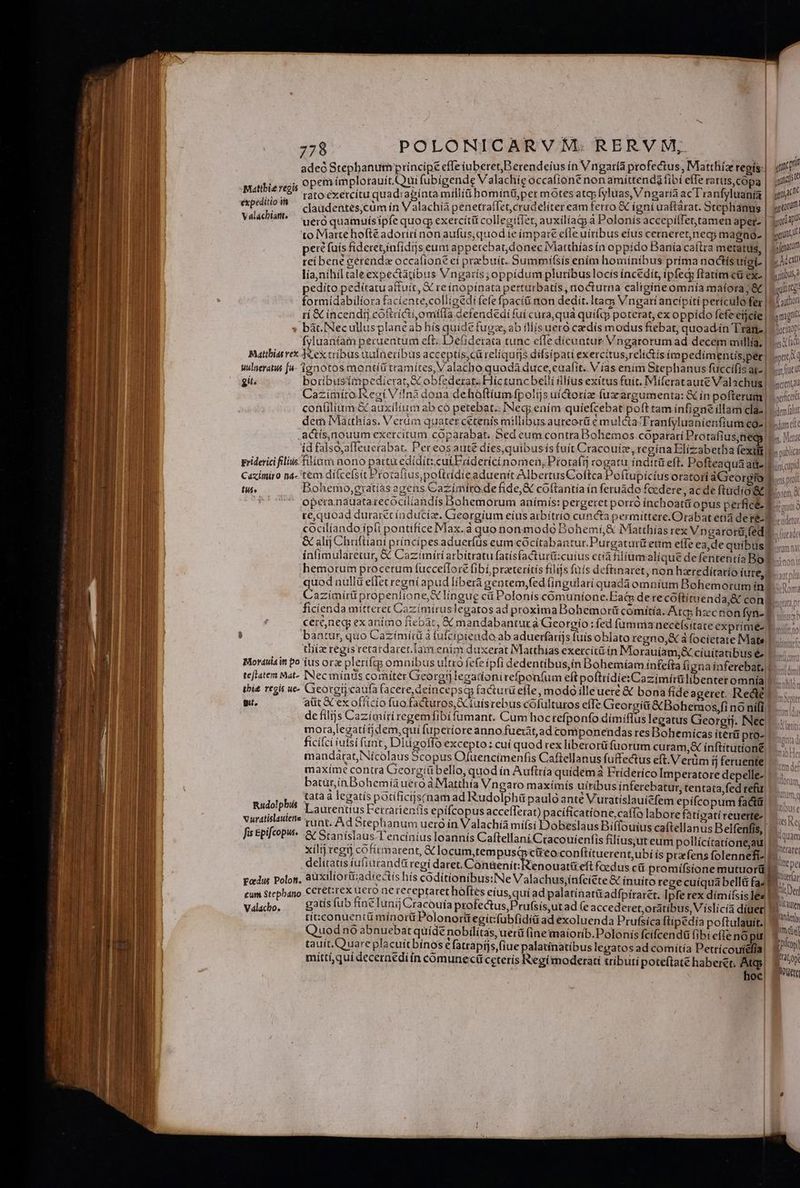 778 POLONICARVM RERVM,
adeò Stephanum principē esse iuberet, Berendeius in Vngariā profectus, Matthiæ regis
opem implorauit. Qui subigendę Valachię occasionē non amittendā sibi esse ratus, copa
Matthiæ regis
expeditio in
Valachiam.
rato exercitu quadraginta milliū hominū, per mōtes atq; syluas, Vngariā ac Transyluaniā
claudentes, cùm in Valachiā penetrasset, crudeliter eam ferro & igni uastârat. Stephanus
uerò quamuis ipse quoq; exercitū collegisset, auxiliaq; à Polonis accepisset, tamen aper-
to Marte hostē adoriri non ausus, quòd ie imparē esse uiribus eius cerneret, neq; magno-
perē suis fideret, insidijs eum appetebat, donec Matthias in oppido Bania castra metatus,
rei bene gerendæ occasionē ei præbuit. Summissis enim hominibus prima noctis uigi-
lia, nihil tale expectātibus Vngaris, oppidum pluribus locis incēdit, ipseq; statim cū ex-
pedito peditatu affuit, & re inopinata perturbatis, nocturna caligine omnia maiora, &
formidabiliora faciente, colligēdi sese spaciū non dedit. Itaq; Vngari ancipiti periculo fer
ri & incendij cōstricti, omissa defendēdi sui cura, quà quisq; poterat, ex oppido sese eijcie
bāt. Nec ullus planè ab his quidē fugæ, ab illis uerò cædis modus fiebat, quoad in Tran-
syluaniam peruentum est. Desiderata tunc esse dicuntur Vngarorum ad decem millia.
Matthias rex
uulneratus fu-
git.
Rex tribus uulneribus acceptis, cū reliquijs dissipati exercitus, relictis impedimentis, per
ignotos montiū tramites, Valacho quodā duce, euasit. Vias enim Stephanus succisis ar-
boribus impedierat, & obsederat. Hic tunc belli illius exitus fuit. Miserat autē Valachus
Cazimiro Regi Vilnā dona de hostium spolijs uictoriæ suæ argumenta: & in posterum
consilium & auxilium ab eo petebat. Neq; enim quiescebat post tam insignē illam cla-
dem Matthias. Verùm quater cētenis millibus aureorū è mulcta Transyluaniensium co-
actis, nouum exercitum cōparabat. Sed eum contra Bohemos cōparari Protasius, neq;
id falsò, asseuerabat. Per eos autē dies, quibus is fuit Cracouiæ, regina Elizabetha sextū
Friderici filius
Cazimiro na-
tus.
filium nono partu edidit: cui Friderici nomen, Protasij rogatu inditū est. Posteaquā aū-
tem discessit Protasius, postridie aduenit Albertus Costca Postupicius orator à Georgio
Bohemo, gratias agens Cazimiro de fide, & cōstantia in seruādo fœdere, ac de studio &
opera nauata recōciliandis Bohemorum animis: pergeret porrò inchoatū opus perfice-
re, quoad durarēt induciæ. Georgium eius arbitrio cuncta permittere. Orabat etiā de re-
cōciliando ipsi pontifice Max. à quo non modò Bohemi, & Matthias rex Vngarorū, sed
& alij Christiani principes aduersus eum cōcitabantur. Purgaturū eum esse ea, de quibus
insimularetur, & Cazimiri arbitratu satisfacturū: cuius etiā filium aliquē de sententia Bo
hemorum procerum successorē sibi, præteritis filijs suis destinaret, non hæreditario iure,
quod nullū esset regni apud liberā gentem, sed singulari quadā omnium Bohemorum in
Cazimirū propensione, & linguę cū Polonis cōmunione. Eaq; de re cōstituenda, & con
ficienda mitteret Cazimirus legatos ad proxima Bohemorū comitia. Atq; hæc non syn-
cerè, neq; ex animo fiebāt, & mandabantur à Georgio: sed summa necessitate exprime-
bantur, quo Cazimirū à suscipiendo ab aduersarijs suis oblato regno, & à societate Mat-
thiæ regis retardaret. Iam enim duxerat Matthias exercitū in Morauiam, & ciuitatibus e-
Morauia in po
testatem Mat-
thiæ regis ue-
nit.
ius oræ plerisq; omnibus ultrò sese ipsi dedentibus, in Bohemiam infesta signa inferebat.
Nec minùs comiter Georgij legationi responsum est postridie: Cazimirū libenter omnia
Georgij causa facere, deincepsq; facturū esse, modò ille uerè & bona fide ageret. Rectè
aūt & ex officio suo facturos, & iuis rebus cōsulturos esse Georgiū & Bohemos, si nō nisi
de filijs Cazimiri regem sibi sumant. Cum hoc responso dimissus legatus Georgij. Nec
mora, legati ijdem, qui superiore anno fuerāt, ad componendas res Bohemicas iterū pro-
ficisci iussi sunt, Dlugosso excepto: cui quòd rex liberorū suorum curam, & institutionē
mandârat, Nicolaus Scopus Osuencimensis Castellanus suffectus est. Verùm ij feruente
maximè contra Georgiū bello, quod in Austria quidem à Friderico Imperatore depelle-
batur, in Bohemia uerò à Matthia Vngaro maximis uiribus inferebatur, tentata, sed refu
tata à legatis pōtificijs (nam ad Rudolphū paulò antè Vuratislauiēsem episcopum factū
Rudolphus
Vuratislauien-
sis Episcopus.
Laurentius Ferrariensis episcopus accesserat) pacificatione, casso labore fatigati reuerte-
runt. Ad Stephanum uerò in Valachiā missi Dobeslaus Bissouius castellanus Belsensis,
& Stanislaus Tencinius Ioannis Castellani Cracouiensis filius, ut eum pollicitatione, au
xilij regij cōfirmarent, & locum, tempusq; cūreo constituerent, ubi is præsens solennesi-
delitatis iusiurandū regi daret. Conuenit: Renouatū est fœdus cū promissione mutuorū
Fœdus Polon.
cum Stephano
Valacho.
auxiliorū: adiectis his cōditionibus: Ne Valachus, inscicte & inuito rege cuiquā bellū fa-
ceret: rex uerò ne receptaret hostes eius, qui ad palatinatū adspirarēt. Ipse rex dimissis le-
gatis sub finē Iunij Cracouia profectus, Prussis, ut ad se accederet, oratibus, Vislicia diuer
tit: conuentū minorū Polonorū egit: subsidiū ad exoluenda Prussica stipēdia postulauit.
Quod nō abnuebat quidē nobilitas, uerū sine maiorib. Polonis sciscendū sibi esse nō pu
tauit. Quare placuit binos è satrapijs, siue palatinatibus legatos ad comitia Petricouiēsia
mitti, qui decernēdi in cōmune cū ceteris Regi moderati tributi potestatē haberēt. Atq;
hoc